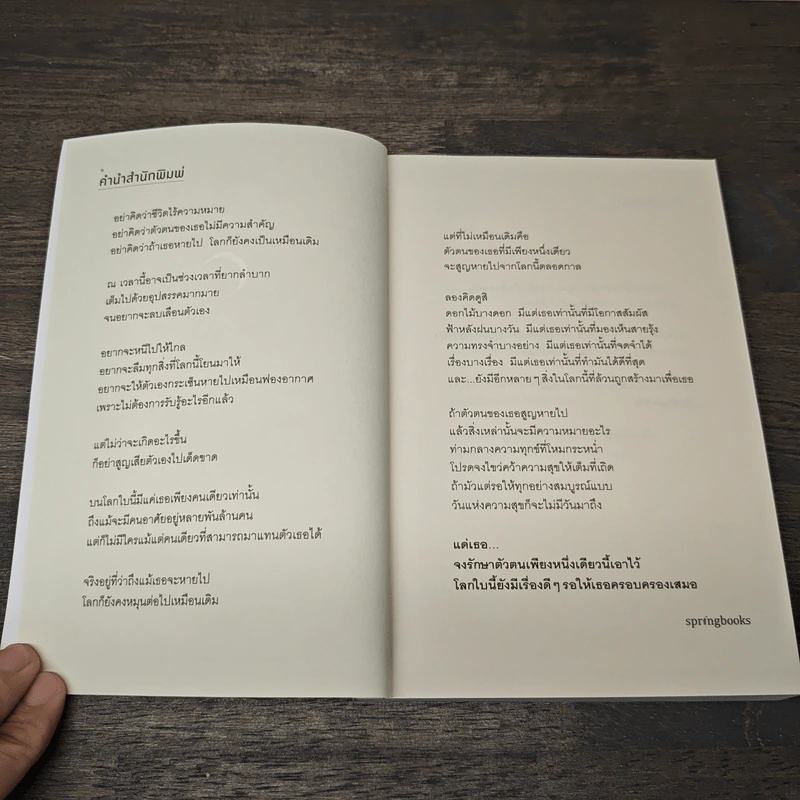 คำนำสำนักพิมพ์
อย่าคิดว่าชีวิตไร้ความหมาย
อย่าคิดว่าตัวตนของเธอไม่มีความสำคัญ
อย่าคิดว่าถ้าเธอหายไป โลกก็ยังคงเป็นเหมือนเดิม
ณ เวลานี้อาจเป็นช่วงเวลาที่ยากลำบาก
เต็มไปด้วยอุปสรรคมากมาย
จนอยากจะลบเลือนตัวเอง
อยากจะหนีไปให้ไกล
อยากจะลืมทุกสิ่งที่โลกนี้โยนมาให้
อยากจะให้ตัวเองกระเซ็นหายไปเหมือนฟองอากาศ
เพราะไม่ต้องการรับรู้อะไรอีกแล้ว
แต่ไม่ว่าจะเกิดอะไรขึ้น
ก็อย่าสูญเสียตัวเองไปเด็ดขาด
บนโลกใบนี้มีแค่เธอเพียงคนเดียวเท่านั้น
ถึงแม้จะมีคนอาศัยอยู่หลายพันล้านคน
แต่ก็ไม่มีใครแม้แต่คนเดียวที่สามารถมาแทนตัวเธอได้
จริงอยู่ที่ว่าถึงแม้เธอจะหายไป
โลกก็ยังคงหมุนต่อไปเหมือนเดิม
แต่ที่ไม่เหมือนเดิมคือ
ตัวตนของเธอที่มีเพียงหนึ่งเดียว
จะสูญหายไปจากโลกนี้ตลอดกาล
ลองคิดดูสิ
ดอกไม้บางดอก มีแต่เธอเท่านั้นที่มีโอกาสสัมผัส
ฟ้าหลังฝนบางวัน มีแต่เธอเท่านั้นที่มองเห็นสายรุ้ง
ความทรงจำบางอย่าง มีแต่เธอเท่านั้นที่จดจำได้
เรื่องบางเรื่อง มีแต่เธอเท่านั้นที่ทำมันได้ดีที่สุด
และ...ยังมีอีกหลาย ๆ สิ่งในโลกนี้ที่ล้วนถูกสร้างมาเพื่อเธอ
ถ้าตัวตนของเธอสูญหายไป
แล้วสิ่งเหล่านั้นจะมีความหมายอะไร
ท่ามกลางความทุกข์ที่โหมกระหน่ำ
โปรดจงไขว่คว้าความสุขให้เต็มที่เถิด
ถ้ามัวแต่รอให้ทุกอย่างสมบูรณ์แบบ
วันแห่งความสุขก็จะไม่มีวันมาถึง
แด่เธอ...
จงรักษาตัวตนเพียงหนึ่งเดียวนี้เอาไว้
โลกใบนี้ยังมีเรื่องดี ๆ รอให้เธอครอบครองเสมอ
springbooks